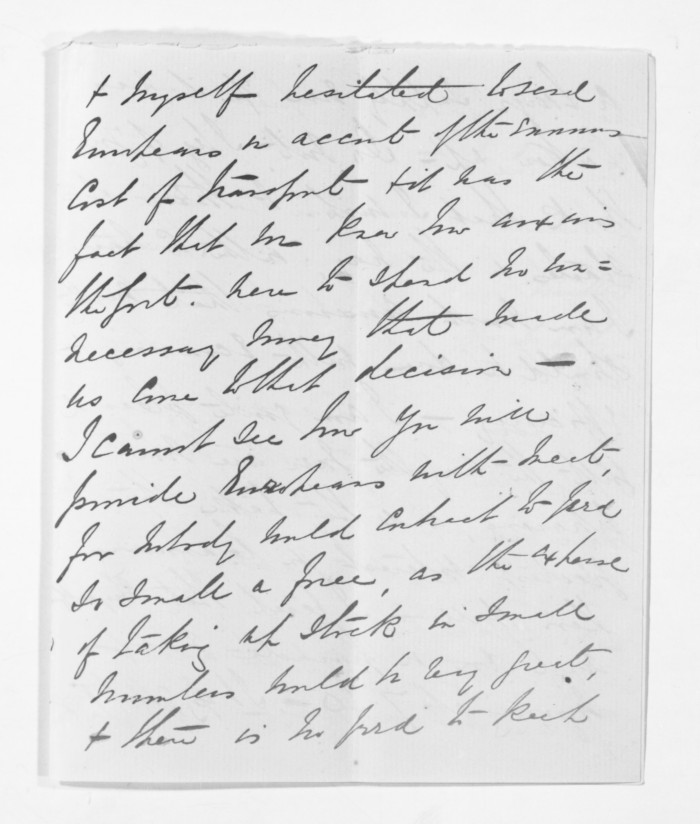 & myself hesitated to send
Europeans on accnt of the enormous
Cost of transport & it was the
fact that we knew how anxious
the Govt. were to spend no un=
necessary money that made
us come to that decision —
I cannot see how you will
provide Europeans with meat,
for nobody would contract to feed
so small a force, as the expense
of taking up stock in small
numbers would be very great,
& there is no feed to keep